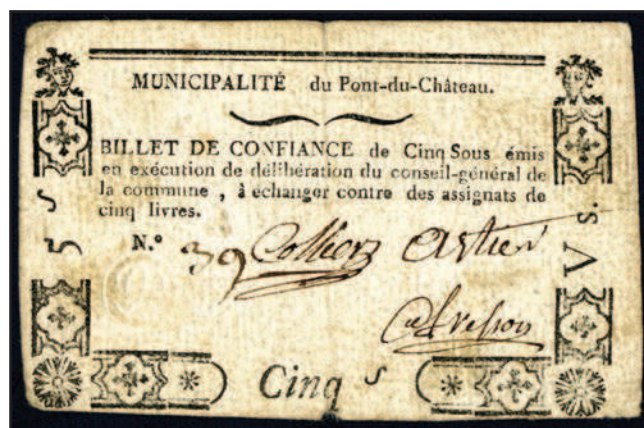 MUNICIPALITÉ du Pont-du-Château.
BILLET DE CONFIANCE de Cinq Sous émis
en exécution de délibération du conseil-général de
la commune, à échanger contre des assignats de
cinq livres.
N.º 39 Collier Astier
Cinq s
V s.
5 s